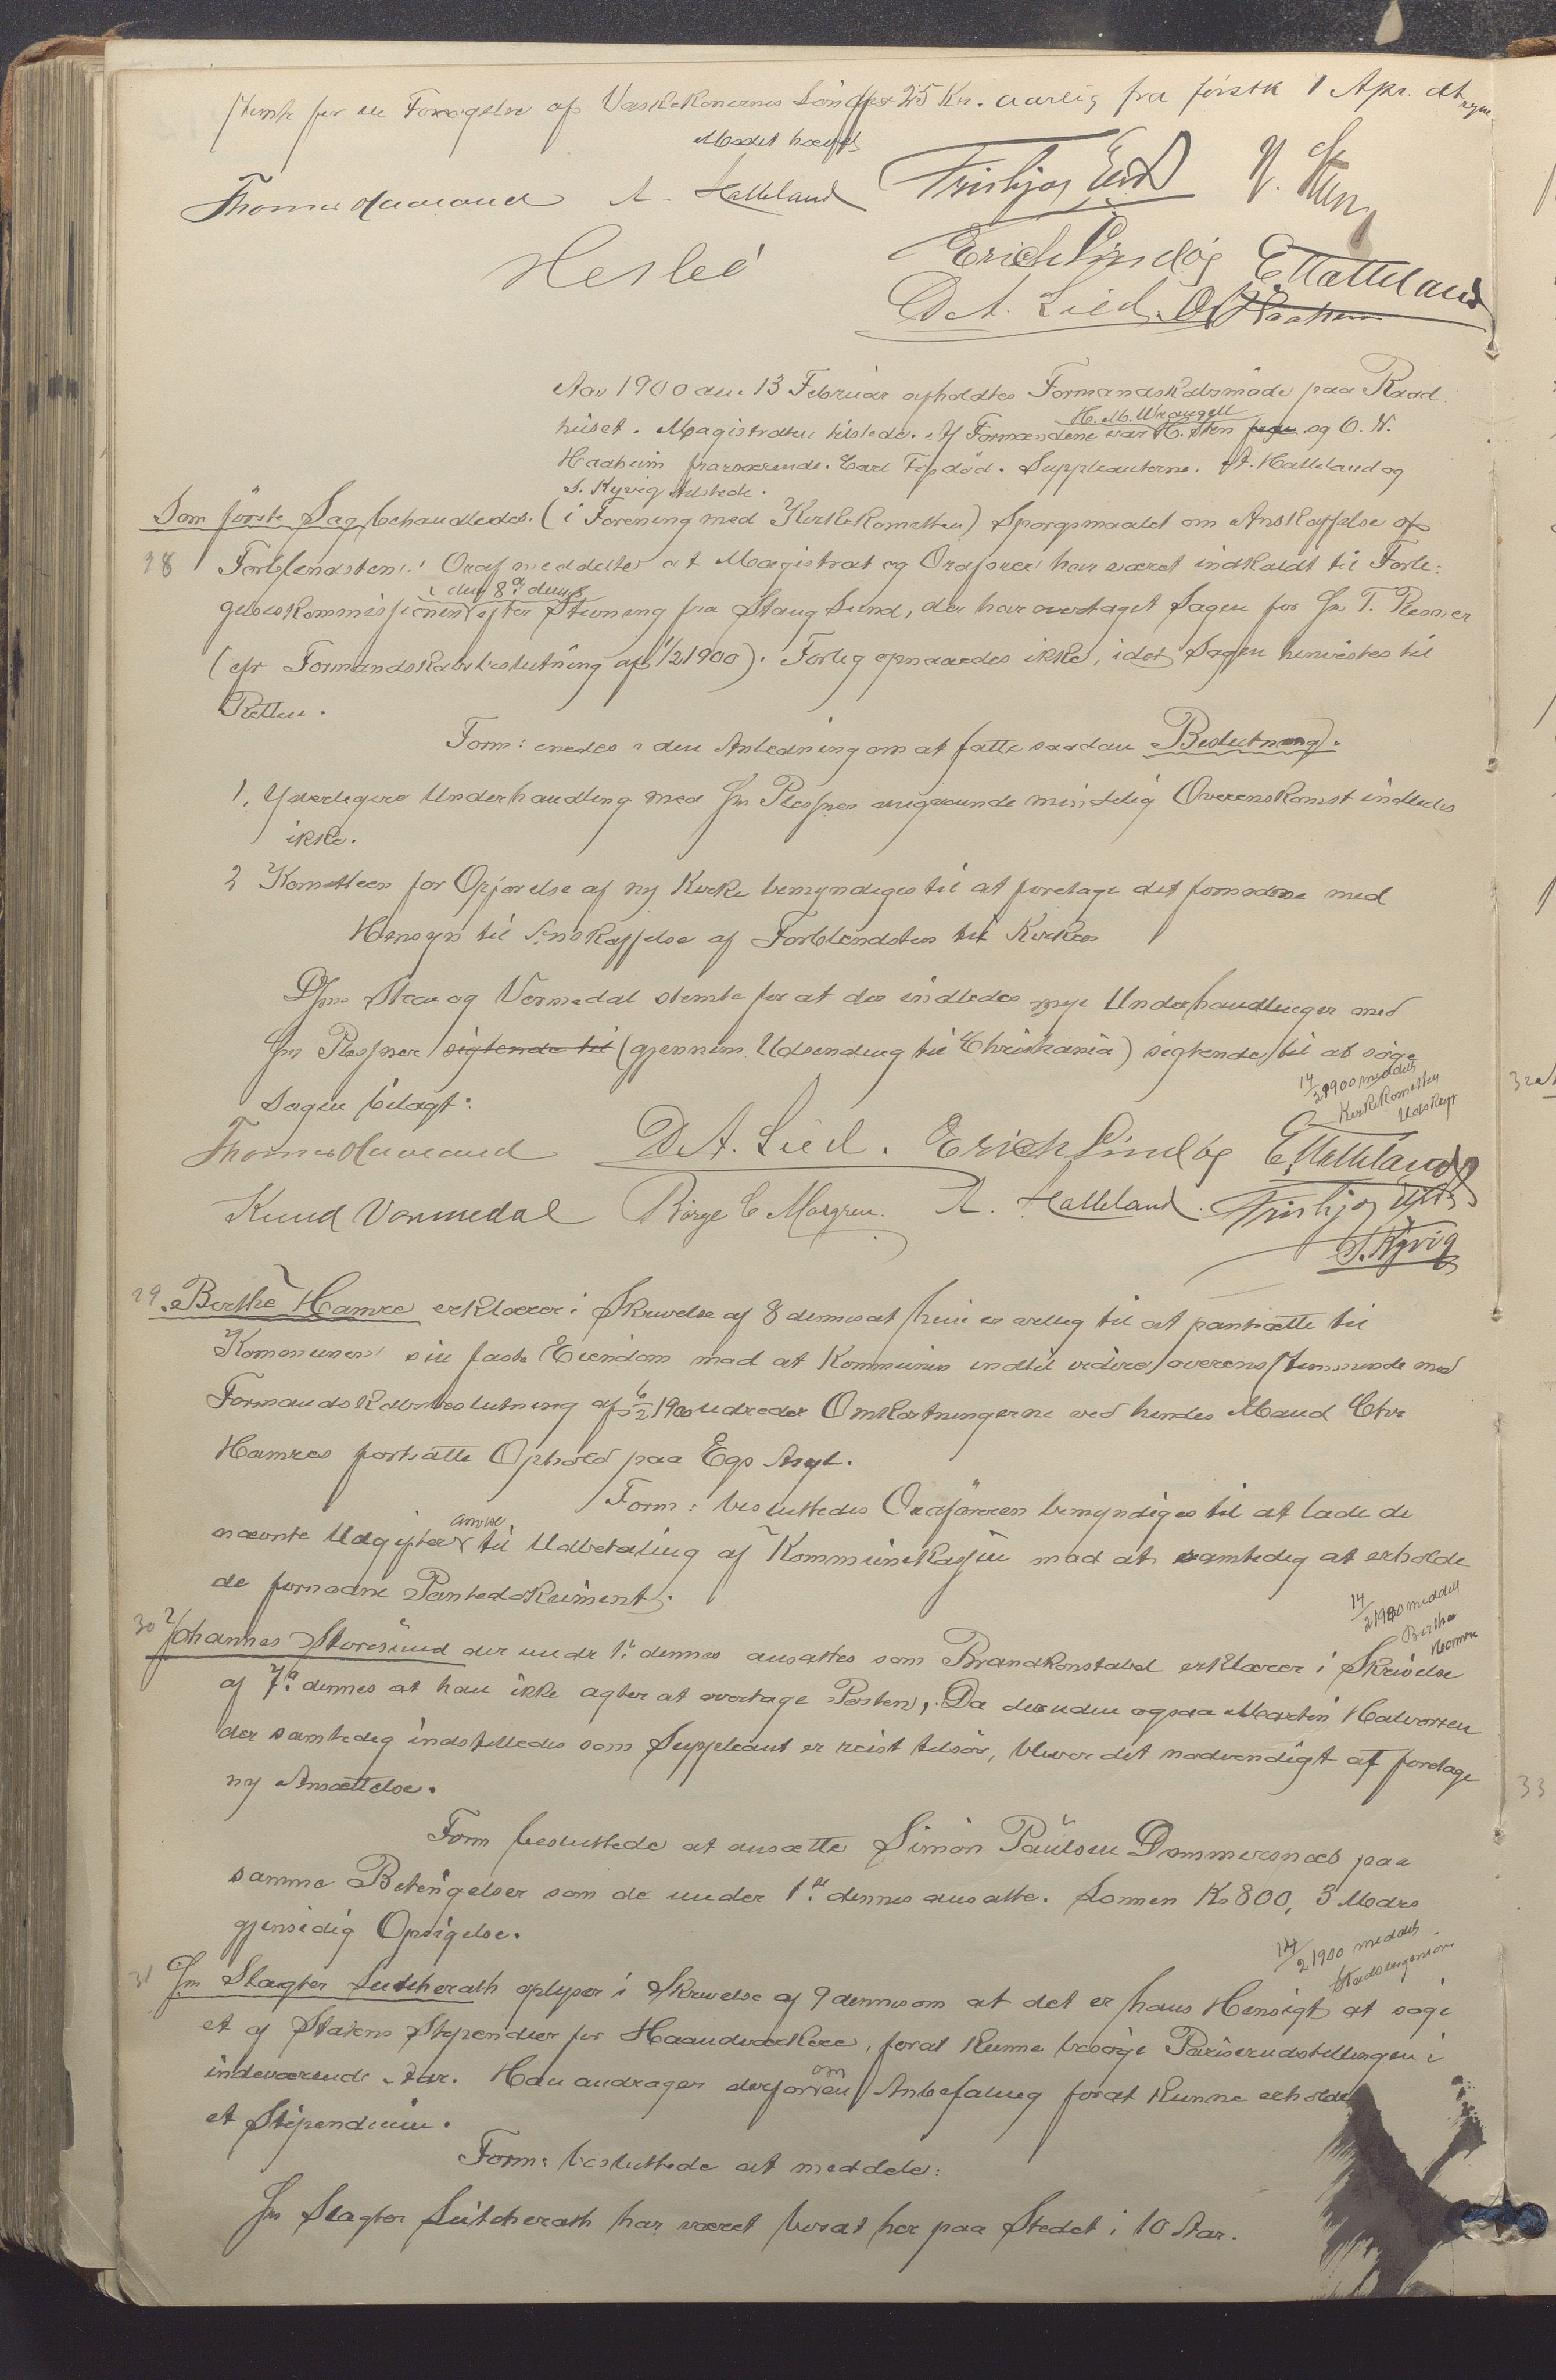 stemte for en Forøgelse af Vaskekonernes Løn 25 Kr. aarlig fra førstk 1 Apr. at regne
Mødet hævet
Thomas Haaland A. Halleland
E Hatteland
D. A. Lied.
Aar 1900 den 13 Februar afholdtes Formandskabsmøde paa Raad
huset. Magistraten tilstede. Af Formændene var H. Sten H. M. Wrangell og O. N.
Haaheim fraværende. Carl død. Suppleanterne A. Halleland og
S. Kyvig tilstede.
Som første Sag behandledes (i Forening med Kirkekomiteen) Spørgsmaalet om Anskaffelse af
28 Forblendsten. Ordf meddelte at Magistrat og Ordfører har været indkaldt til Forli-
gelseskommissionen i den 8de dennes efter Stevning fra Stang Lund, der har overtaget Sagen for Hr T.
(cfr Formandskabsbeslutning af 1/2 1900). Forlig opnaaedes ikke, idet Sagen henvistes til
Retten.
Form: enedes i den Anledning om at fatte saadan Beslutning:
1. Yderligere Underhandling med Hr angaaende mindelig Overenskomst indledes
ikke.
2 Komiteen for Opførelse af ny Kirke bemyndiges til at foretage det fornødne med
Hensyn til Anskaffelse af Forblendsten til Kirken
Dhrr Steen og Vormedal stemte for at der indledes nye Underhandlinger med
Hr sigtende til (gjennem Udsending til Christiania) sigtende til at søge
Sagen bilagt.
14/2 1900 meddelt
Kirkekomiteen
Udskrift
Thomas Haaland D. A. Lied. E Hatteland
Knud Vormedal Børge C Morgren. A. Halleland.
S. Kyvig
29. Berthe Hamre erklærer i Skrivelse af 8 dennes at hun er villig til at pantsætte til
Kommunen sin faste Eiendom mod at Kommunen indtil videre overensstemmende med
Formandskabsbeslutning af 6/2 1900 udreder Omkostningerne ved hendes Mand Chr
Hamres fortsatte Ophold paa Egs Asyl.
Form: besluttedes Ordføreren bemyndiges til at lade de
nævnte Udgifter anvise til Udbetaling af Kommunekassen mod at samtidig at erholde
de fornødne Pantedokument.
14/2 1900 meddelt
Berthe
Hamre
30 Johannes Storesund der under 1ste dennes ansattes som Brandkonstabel erklærer i Skrivelse
af 7de dennes at han ikke agter at overtage Posten. Da desuden ogsaa Martin Halvorsen
der samtidig indstilledes som Suppleant er reist tilsøs, bliver det nødvendigt at foretage
ny Ansættelse.
Form besluttede at ansætte Simon Paulsen Dommersnæs paa
samme Betingelser som de under 1ste dennes ansatte. Lønnen Kr 800, 3 Mdrs
gjensidig Opsigelse.
14/2 1900 meddelt
Stadsingeniør
31 Hr Slagter Leutcherath oplyser i Skrivelse af 9 dennes om at det er hans Hensigt at søge
et af Statens Stipendier for Haandværkere, forat kunne besøge Pariserudstillingen i
indeværende Aar. Han andrager derfor om en Anbefaling forat kunne erholde
et Stipendium.
Form: besluttede at meddele:
Hr Slagter Leutcherath har været bosat her paa Stedet i 10 Aar.
33